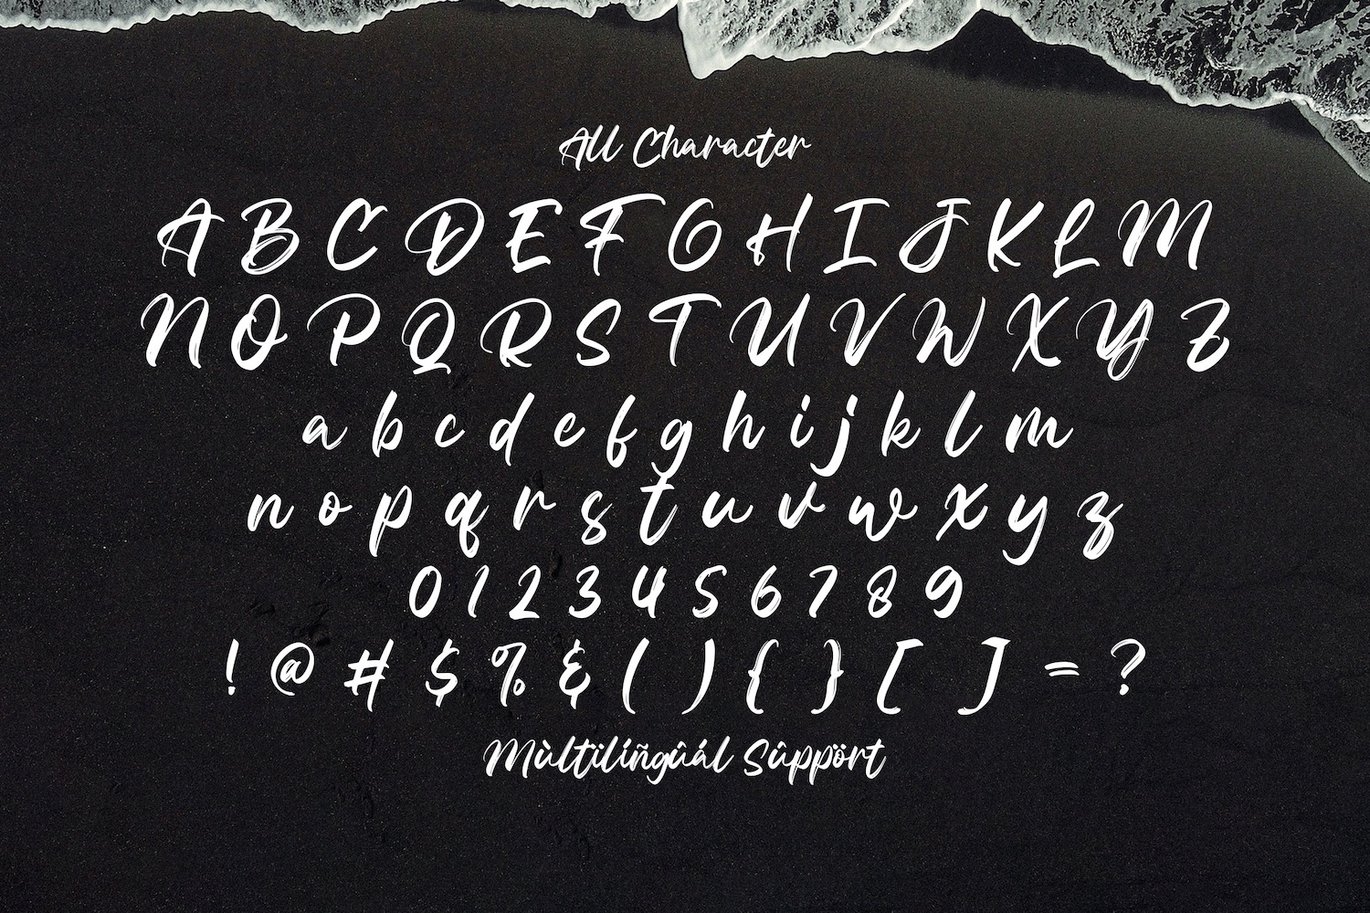 All Character
A B C D E F G H I J K L M
N O P Q R S T U V W X Y Z
a b c d e f g h i j k l m
n o p q r s t u v w x y z
0 1 2 3 4 5 6 7 8 9
! @ # $ % & ( ) { } [ ] = ?
Mùltïlíñgûál Sûppört